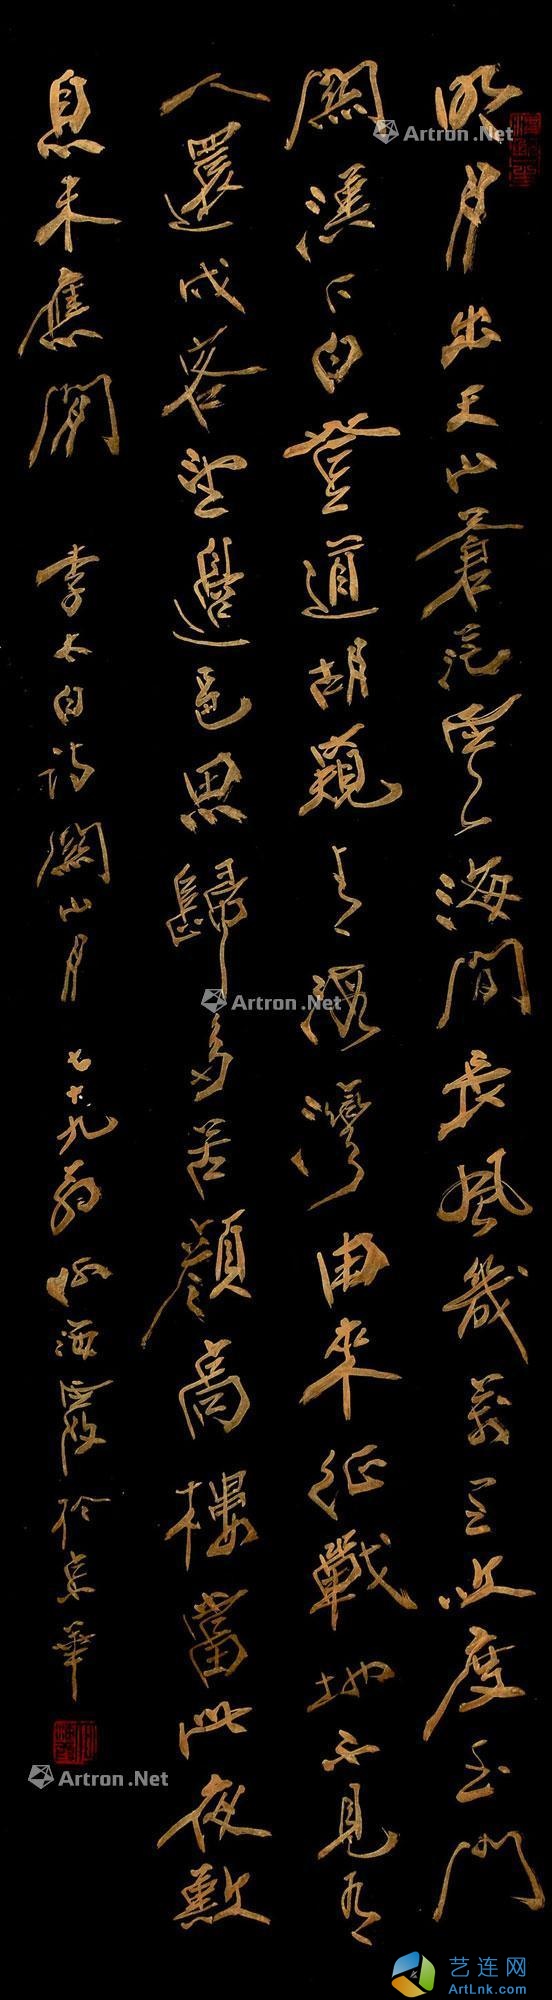 明月出天山蒼茫雲海間長風幾萬里吹度玉門
關漢下白登道胡窺青海灣由來征戰地不見有
人還戍客望邊邑思歸多苦顏高樓當此夜歎
息未應閒 李太白詩關山月 七十九翁何海霞於京華
Artron.Net
Artron.Net
Artron.Net
艺连网
ArtLnk.com